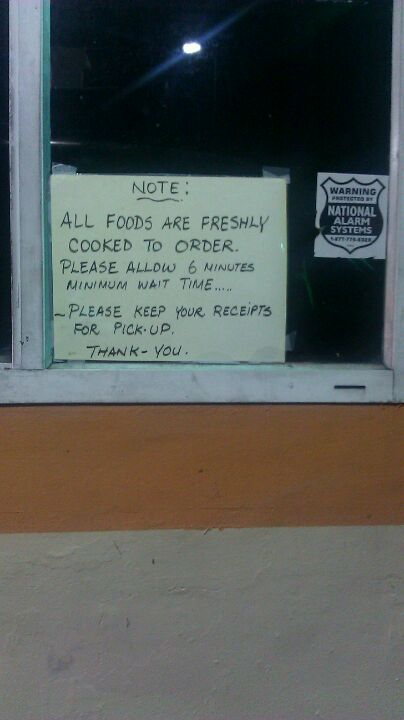 NOTE:
ALL FOODS ARE FRESHLY
COOKED TO ORDER.
PLEASE ALLOW 6 MINUTES
MINIMUM WAIT TIME.....
- PLEASE KEEP YOUR RECEIPTS
FOR PICK-UP.
THANK-YOU.
WARNING
PROTECTED BY
NATIONAL
ALARM
SYSTEMS